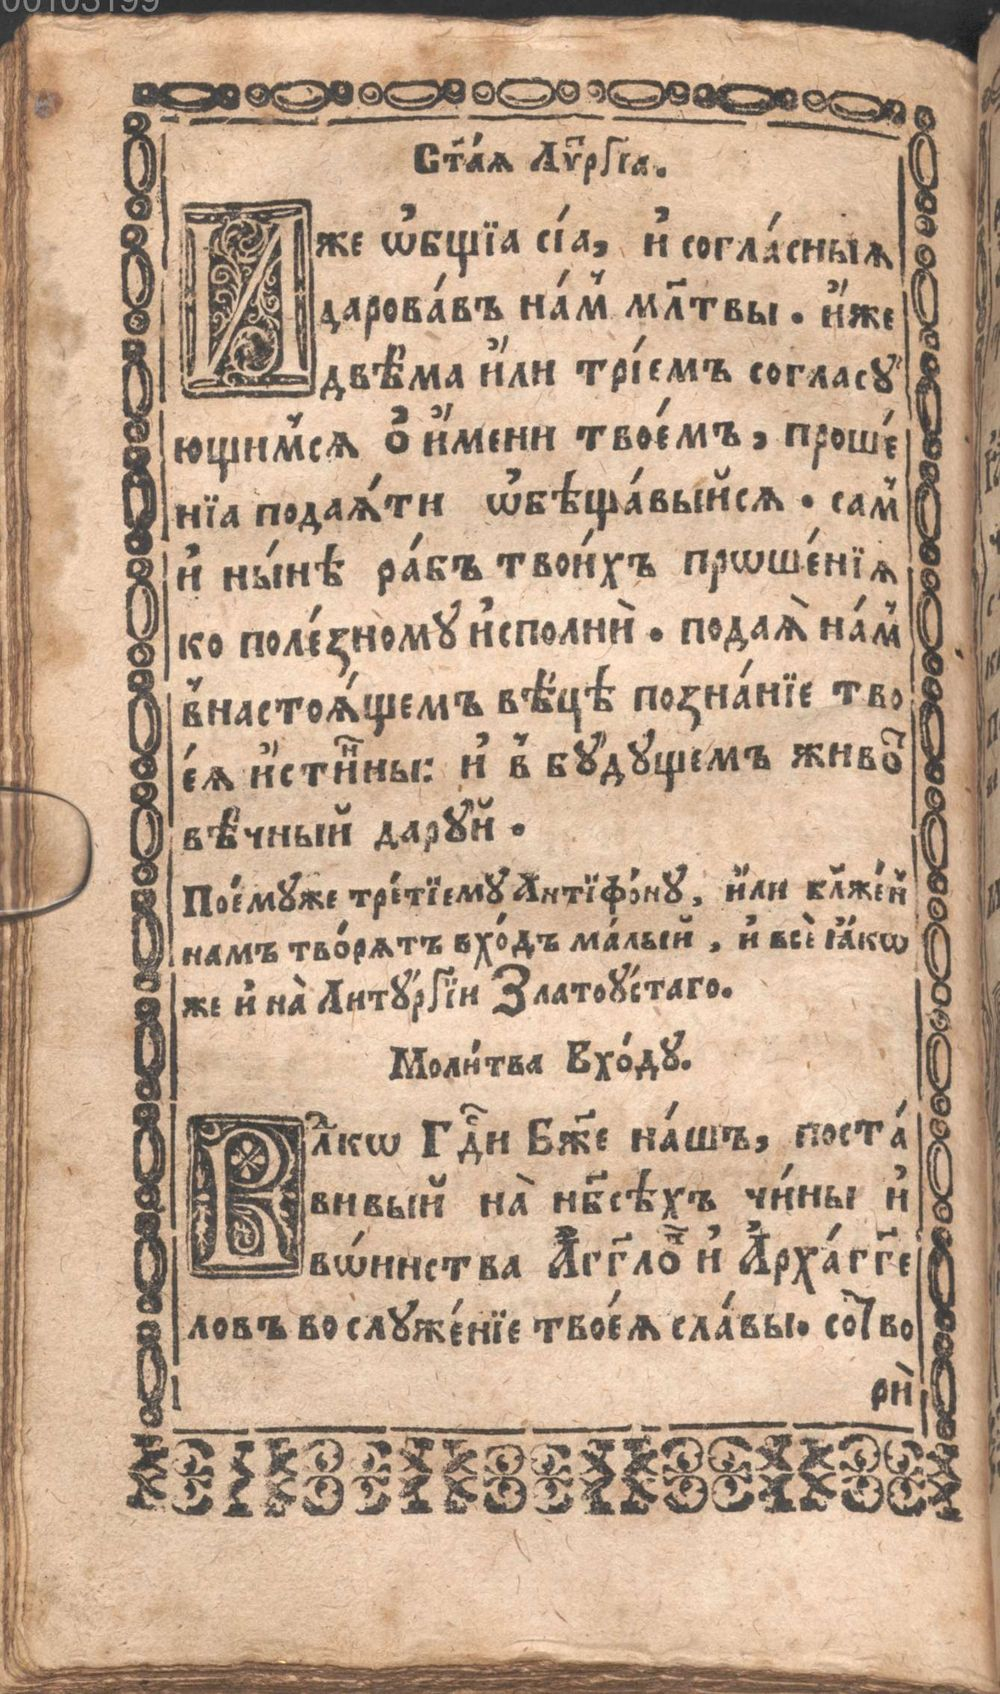 00103199
Ст҃аѧ Лѵⷮрⷢіа.
Иже ѡ҆бщїа сі́а, и҆ согла́сныѧ
дарова́въ на́мⸯ мл҃твы . и҆́же
двѣ́ма и҆́ли трі́емъ согласꙋ
ющимⸯсѧ о҆ и҆́мени твое́мъ, проше́
нїа подаѧ́ти ѡ҆бѣща́выйсѧ . самⸯ
и҆ ны́нѣ ра́бъ твои́хъ прѡше́нїѧ
ко поле́зномꙋ и҆сполнѝ . подаѧ̀ на́мⸯ
вⸯнастоѧ́щемъ вѣ́цѣ позна́нїе тво
е́ѧ и҆́стиⷩ҇ны: и҆ вⸯ бꙋ́дꙋщемъ живоⷮ
вѣ́чный дарꙋ́й .
Пое́мꙋже тре́тїемꙋ Антїфо́нꙋ, и҆́ли бл҃же́н
намъ тво́рѧтъ вхо́дъ ма́лый , и҆ всѐ ꙗ҆́кѡ
же и҆ на̀ Литꙋрⷢі́и Златоꙋ́стаго.
Моли́тва Вхо́дꙋ.
Влⷣкѡ Гⷭ҇ди Бж҃е на́шъ, поста́
вивый на̀ нб҃сѣхъ чи́ны и҆
вѡ́инства А҆гг҃лоⷡ и҆ А҆рха́гг҃е
ловъ во слꙋже́нїе твое́ѧ сла́вы. соⷮво
рѝ